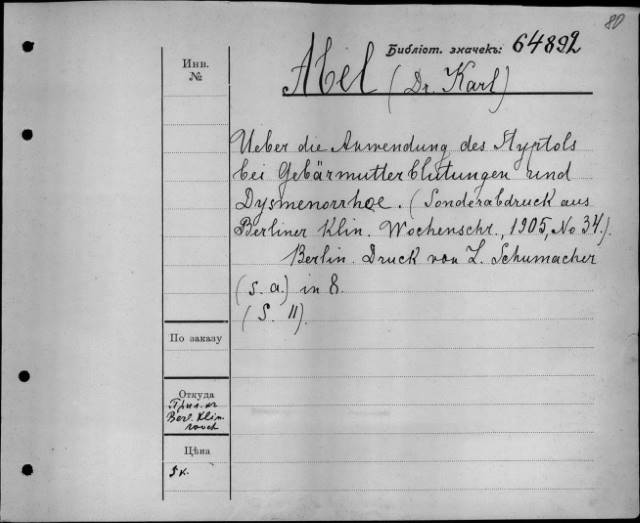 80
Библіот. значекъ: 64892
Abel
(Dr. Karl)
Инв.
№
Ueber die Anwendung des Styptols
bei Gebärmutterblutungen und
Dysmenorrhoe. (Sonderabdruck aus
Berliner Klin. Wochenschr., 1905, No 34.).
Berlin. Druck von L. Schumacher
(s. a.) in 8.
(S. 11).
По заказу
Откуда
Berl. Klin.
Цѣна
5 к.